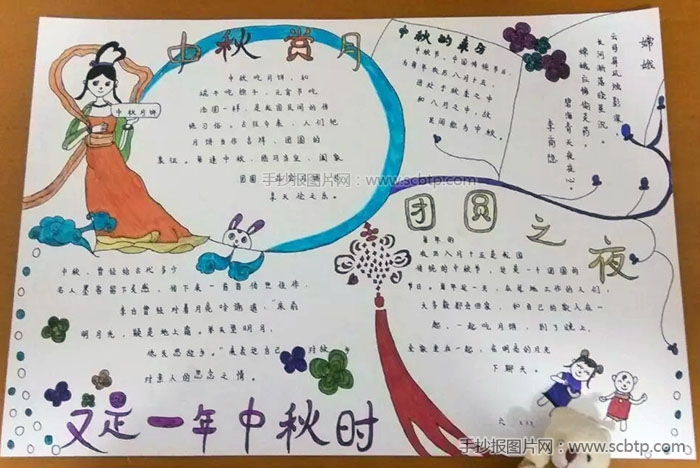 中秋赏月
中秋月饼
中秋吃月饼，和
端午吃粽子，元宵节吃
汤圆一样，是我国民间的传
统习俗。古往今来，人们把
月饼当作吉祥，团圆的
象征。每逢中秋，皓月当空，阖家
团圆
享天伦之乐。
中秋的来历
中秋节，中国传统节日，
为每年农历八月十五，
因处于秋季之中
和八月之中，故
民间称为中秋。
嫦娥
云母屏风烛影深，
长河渐落晓星沉。
嫦娥应悔偷灵药，
碧海青天夜夜心。
李商隐
手抄报图片网：www.scbtp.com
团圆之夜
每年的
农历八月十五是我国
传统的中秋节，这是一个团圆的
节日。每年这一天，在外地工作的人们
大多数都会回家，和自己的家人在一
起，一起吃月饼，到了晚上，
全家坐在一起，在明亮的月光
下聊天。
中秋，曾经给古代多少
名人墨客留下灵感，留下来一首首传世佳作。
李白曾经对着月亮吟诵道，“床前
明月光，疑是地上霜。举头望明月，
低头思故乡。”来表达自己 对故
对亲人的思念之情。
又是一年中秋时
手抄报图片网：www.scbtp.com